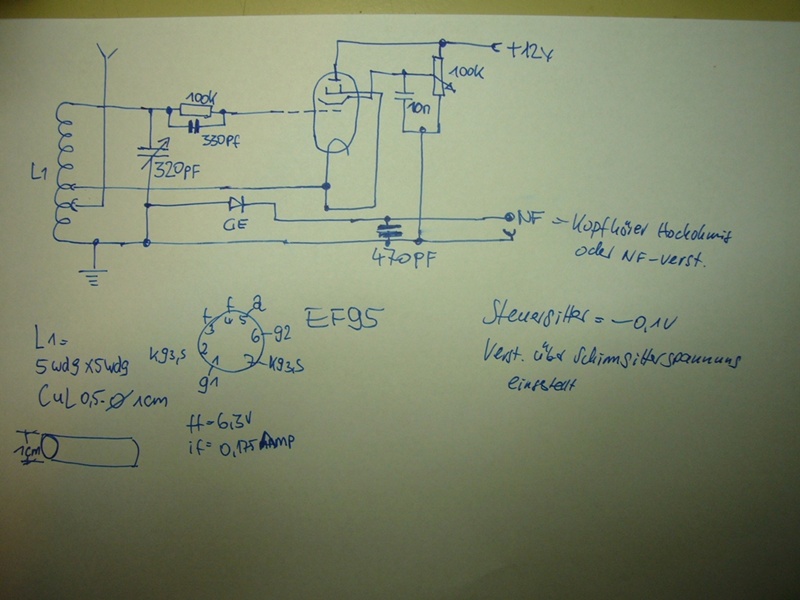 +12V
100K
100K
10n
330pf
L1
320PF
GE
NF – Kopfhörer Hochohmig
oder NF-verst.
470PF
f f a
3 4 5
EF95
6 g2
2
kg3,5
7 kg3,5
1
g1
L1=
5 wdg x 5 wdg
CuL 0,5 - Ø 1cm
1cm
ff = 6,3V
if = 0,175 Amp
Steuergitter = -0,1V
Verst. über Schirmgitterspannung
eingestellt